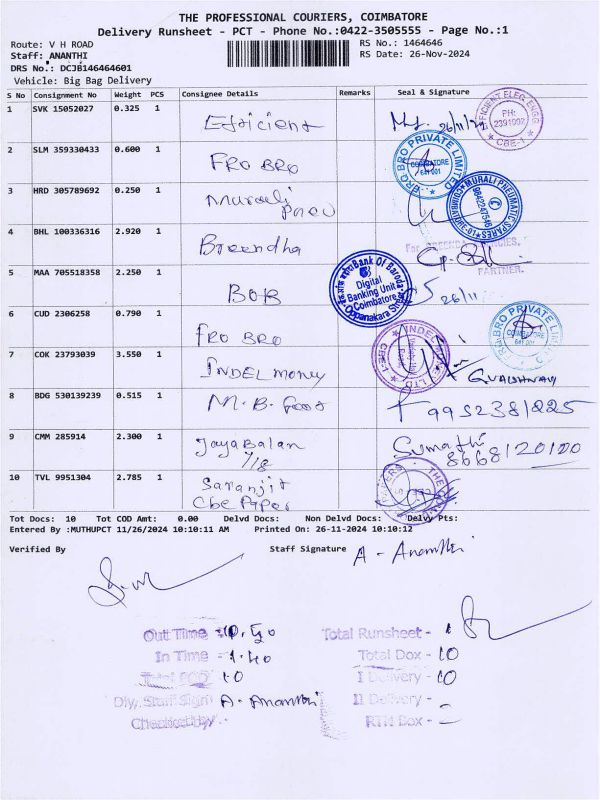 THE PROFESSIONAL COURIERS, COIMBATORE
Delivery Runsheet - PCT - Phone No.:0422-3505555 - Page No.:1
Route: V H ROAD RS No.: 1464646
Staff: ANANTHI RS Date: 26-Nov-2024
DRS No.: DCJB146464601
Vehicle: Big Bag Delivery
S No Consignment No Weight PCS Consignee Details Remarks Seal & Signature
1 SVK 15052027 0.325 1 Efficient 26/11/24
EFFICIENT ELEC. ENGG PH: 2391992 CBE-1
2 SLM 359330433 0.600 1 FRO BRO
BRO PRIVATE LIMITED COIMBATORE 641 001
3 HRD 305789692 0.250 1 Murali
Pneu
MURALI PNEUMATIC SPARES COIMBATORE-10 9842247546
4 BHL 100336316 2.920 1 Breendha
For PARTNER.
5 MAA 705518358 2.250 1 BOB 26/11
Bank Of Baroda Digital Banking Unit Coimbatore Oppanakara Street
6 CUD 2306258 0.790 1 FRO BRO
BRO PRIVATE LIMITED COIMBATORE 641 001
7 COK 23793039 3.550 1 INDEL money G.VAISHNAV
INDEL LTD CBE-1
8 BDG 530139239 0.515 1 M.B. 9952381225
9 CMM 285914 2.300 1 Jayabalan Sumathi
7/8 8668120100
10 TVL 9951304 2.785 1 Saranjit
Cbe Paper
Tot Docs: 10 Tot COD Amt: 0.00 Delvd Docs: Non Delvd Docs: Delvy Pts:
Entered By :MUTHUPCT 11/26/2024 10:10:11 AM Printed On: 26-11-2024 10:10:12
Verified By Staff Signature A - Ananthi
Out Time - 10.50 Total Runsheet - 1
In Time - 1.40 Total Dox - 10
Total POD 10 I Delivery - 10
Dly. Staff Sign A - Ananthi II Delivery -
Checked by RTN Dox -